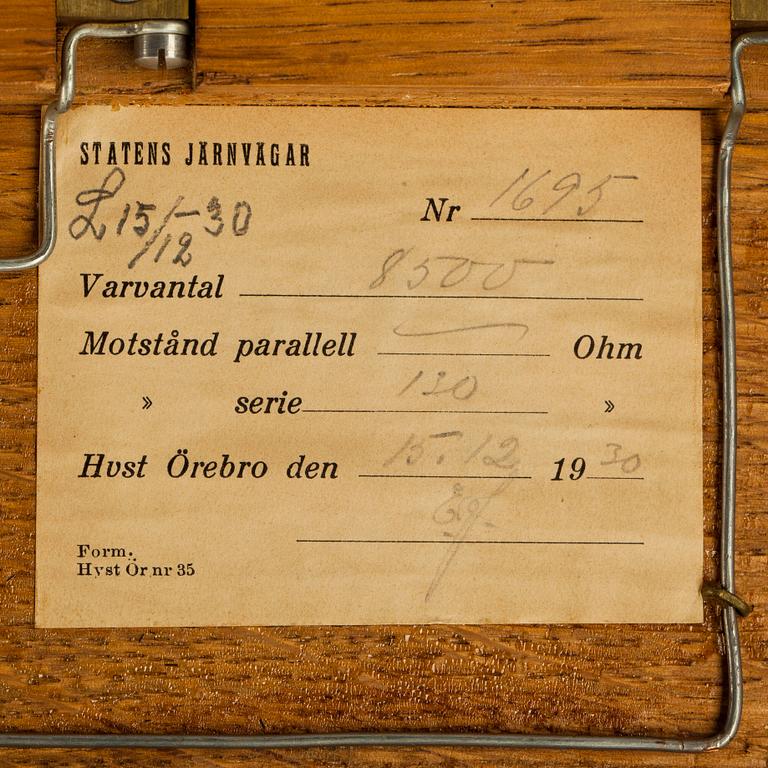 STATENS JÄRNVÄGAR
L 15/12 -30
Nr 1695
Varvantal 8500
Motstånd parallell — Ohm
» serie 130 »
Hvst Örebro den 15.12 1930
Form.
Hvst Ör nr 35